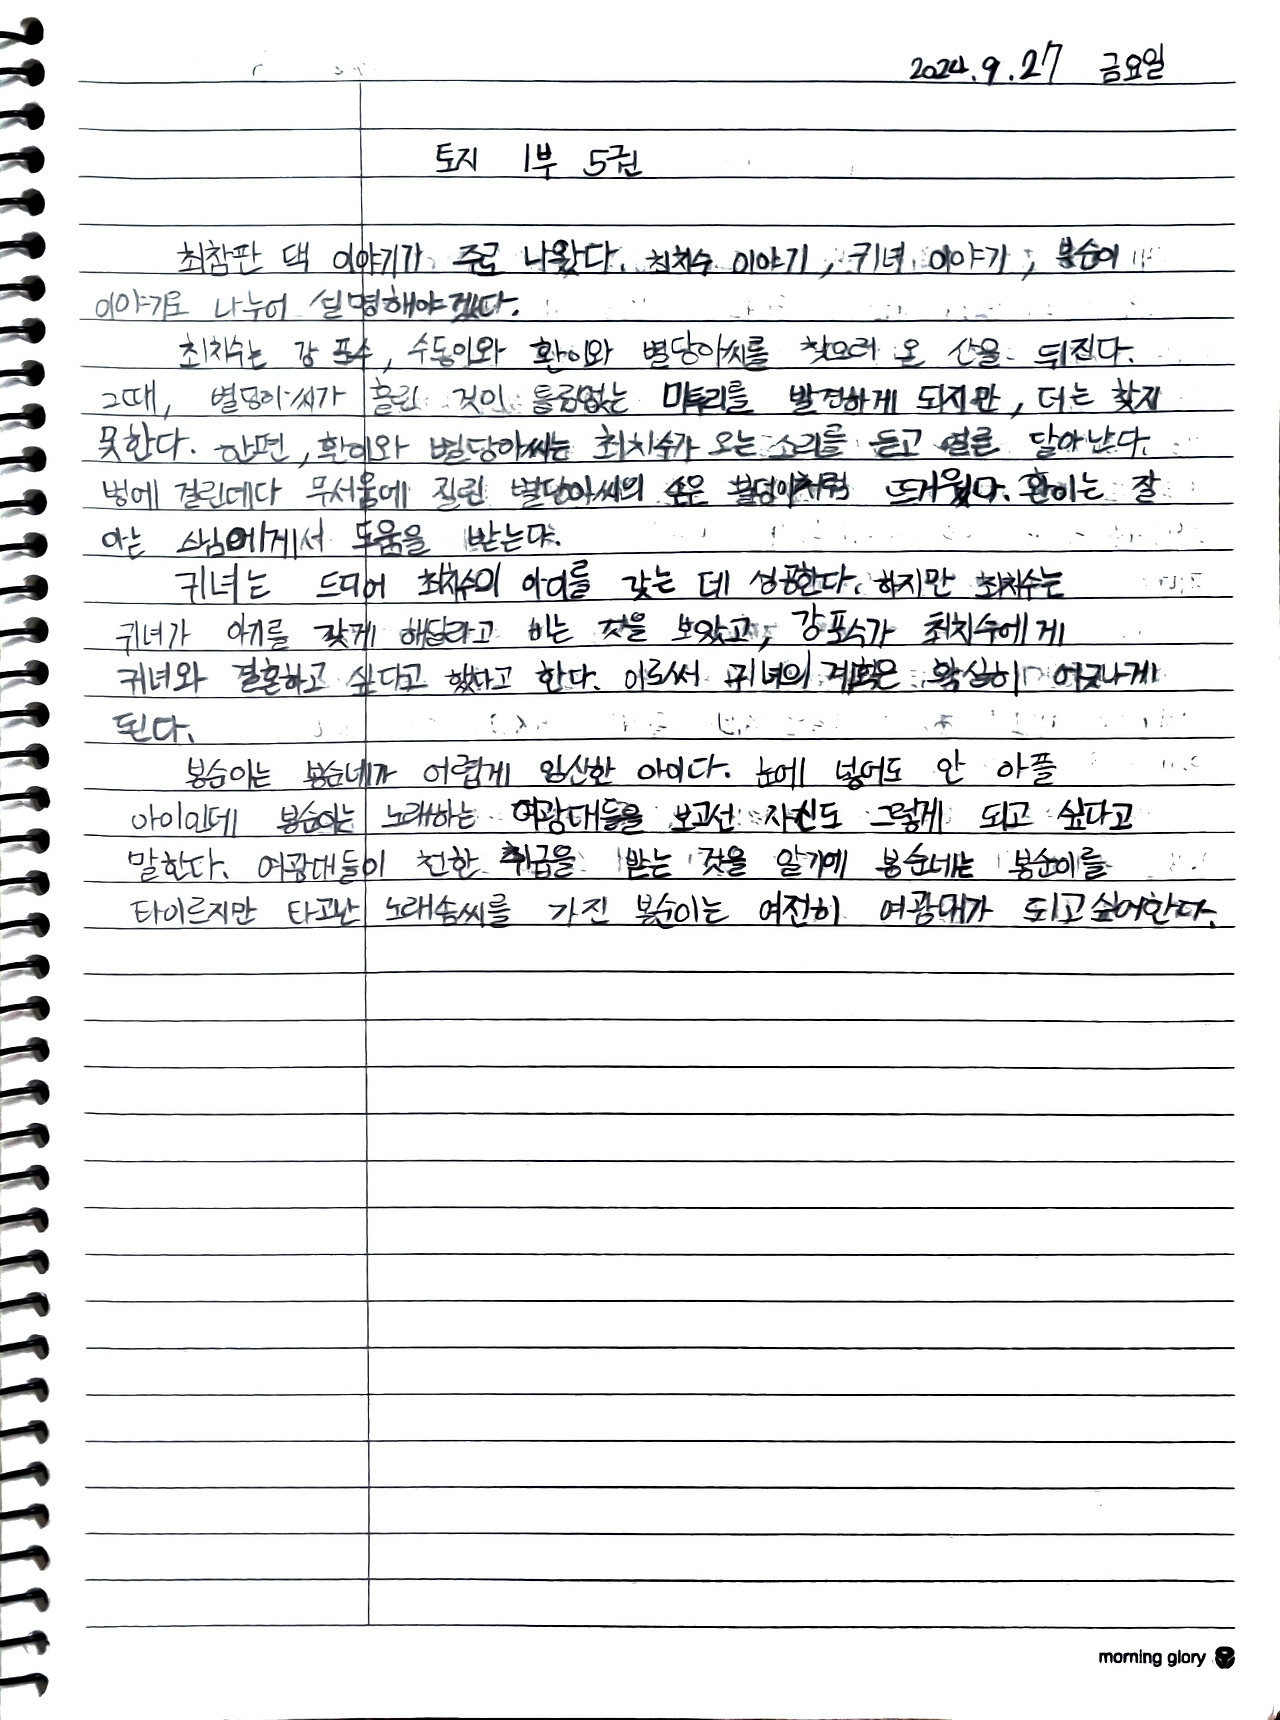 2024.9.27 금요일
토지 1부 5권
최참판 댁 이야기가 주로 나왔다. 최치수 이야기, 귀녀 이야기, 봉순이
이야기로 나누어 설명해야겠다.
최치수는 강 포수, 수동이와 환이와 별당아씨를 찾으러 온 산을 뒤진다.
그때, 별당아씨가 흘린 것인 틀림없는 미투리를 발견하게 되지만, 더는 찾지
못한다. 한편, 환이와 별당아씨는 최치수가 오는 소리를 듣고 얼른 달아난다.
병에 걸린데다 무서움에 질린 별당아씨의 손은 불덩이처럼 뜨거웠다. 환이는 잘
아는 스님에게서 도움을 받는다.
귀녀는 드디어 최치수의 아이를 갖는 데 성공한다. 하지만 최치수는
귀녀가 아기를 갖게 해달라고 하는 것을 보았고, 강포수가 최치수에게
귀녀와 결혼하고 싶다고 했다고 한다. 이로써 귀녀의 계획은 확실히 어긋나게
된다.
봉순이는 봉순네가 어렵게 임산한 아이다. 눈에 넣어도 안 아플
아이인데 봉순이는 노래하는 여광대들을 보고선 자신도 그렇게 되고 싶다고
말한다. 여광대들이 천한 취급을 받는 것을 알기에 봉순네는 봉순이를
타이르지만 타고난 노래솜씨를 가진 봉순이는 여전히 여광대가 되고싶어한다.
morning glory